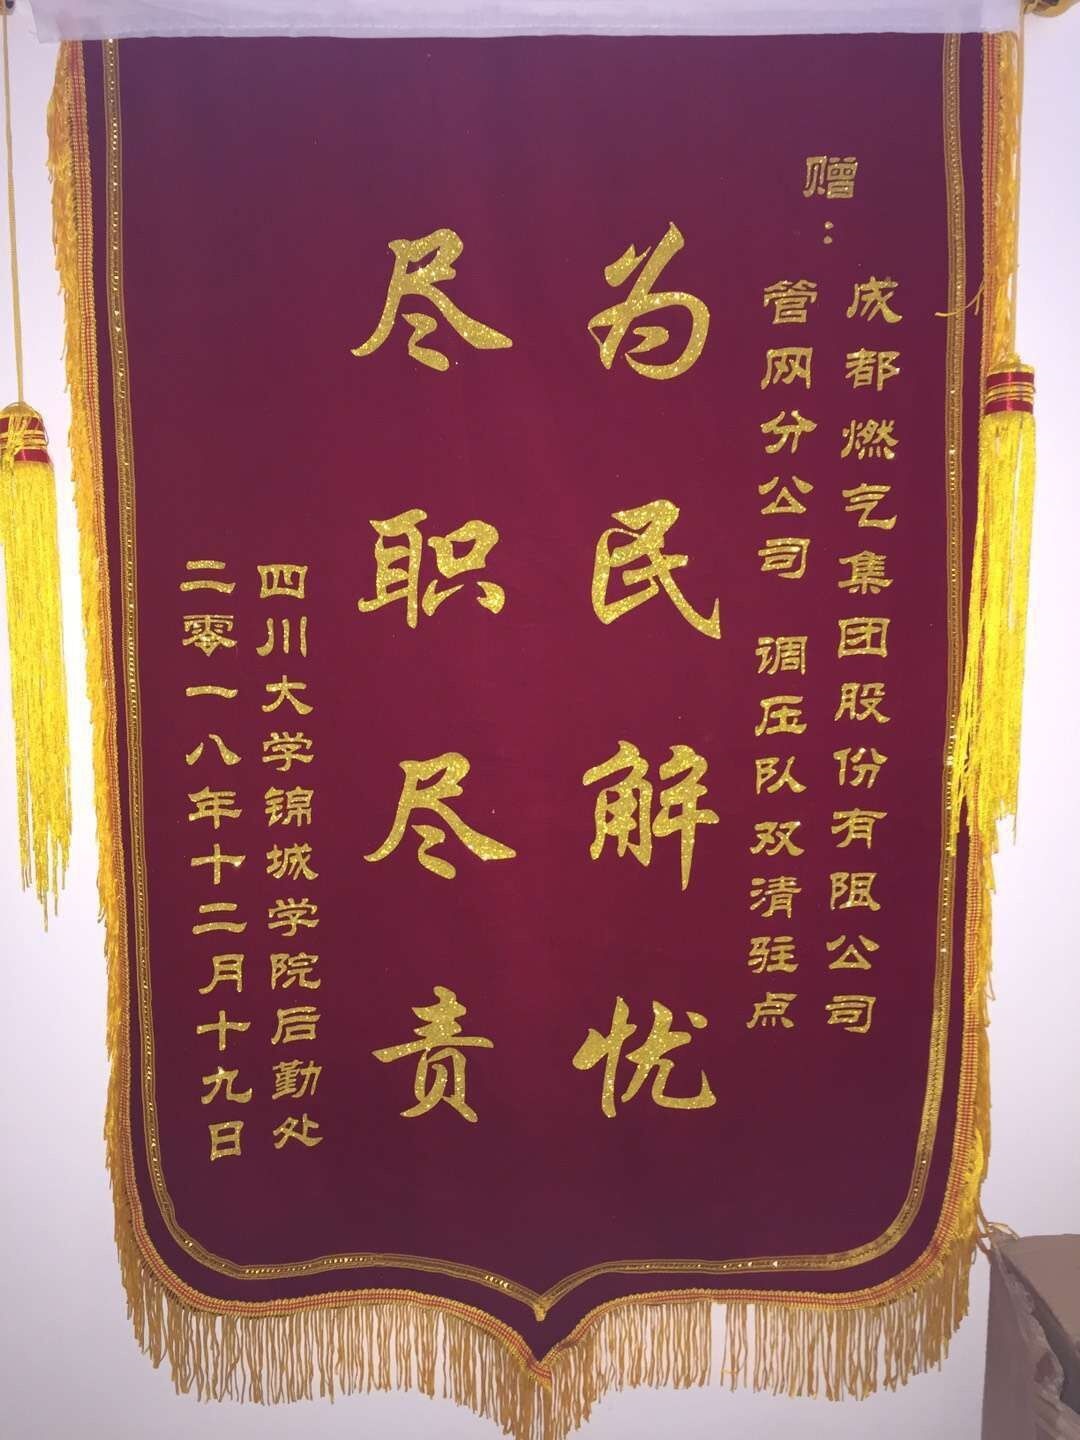 赠：
成都燃气集团股份有阻公司
管网分公司 调压队双清驻点
为民解忧
尽职尽责
四川大学锦城学院后勤处
二零一八年十二月十九日